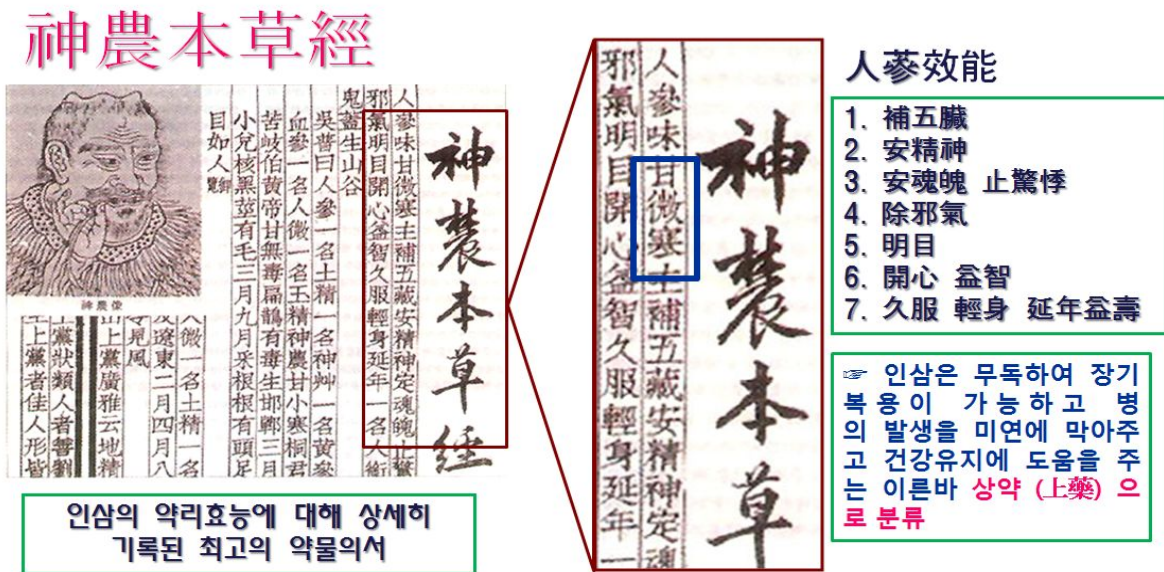 神農本草經
人參味甘微寒主補五藏安精神定魂魄止驚
邪氣明目開心益智久服輕身延年一名人銜
鬼蓋生山谷
吳普曰人參一名土精一名神艸一名黃參
血參一名人微一名玉精神農甘小寒桐君
苦岐伯黃帝甘無毒扁鵲有毒生邯鄲三月
小兌核黑莖有毛三月九月采根根有頭足
目如人
神農本草經
神農像
人微一名土精一名
及遼東二月四月八
上黨廣雅云地精
上黨狀類人者善劉
上上黨者佳人形皆
인삼의 약리효능에 대해 상세히
기록된 최고의 약물의서
神農本草
人參味甘微寒主補五藏安精神定魂
邪氣明目開心益智久服輕身延年一
人蔘效能
1. 補五臟
2. 安精神
3. 安魂魄 止驚悸
4. 除邪氣
5. 明目
6. 開心 益智
7. 久服 輕身 延年益壽
☞ 인삼은 무독하여 장기
복용이 가능하고 병
의 발생을 미연에 막아주
고 건강유지에 도움을 주
는 이른바 상약 (上藥) 으
로 분류